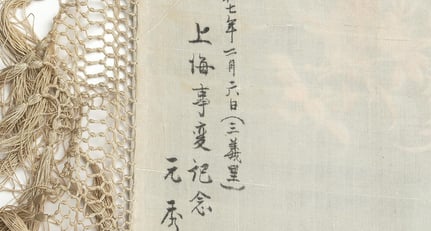 七年二月六日(三義里)
上海事変記念
元秀